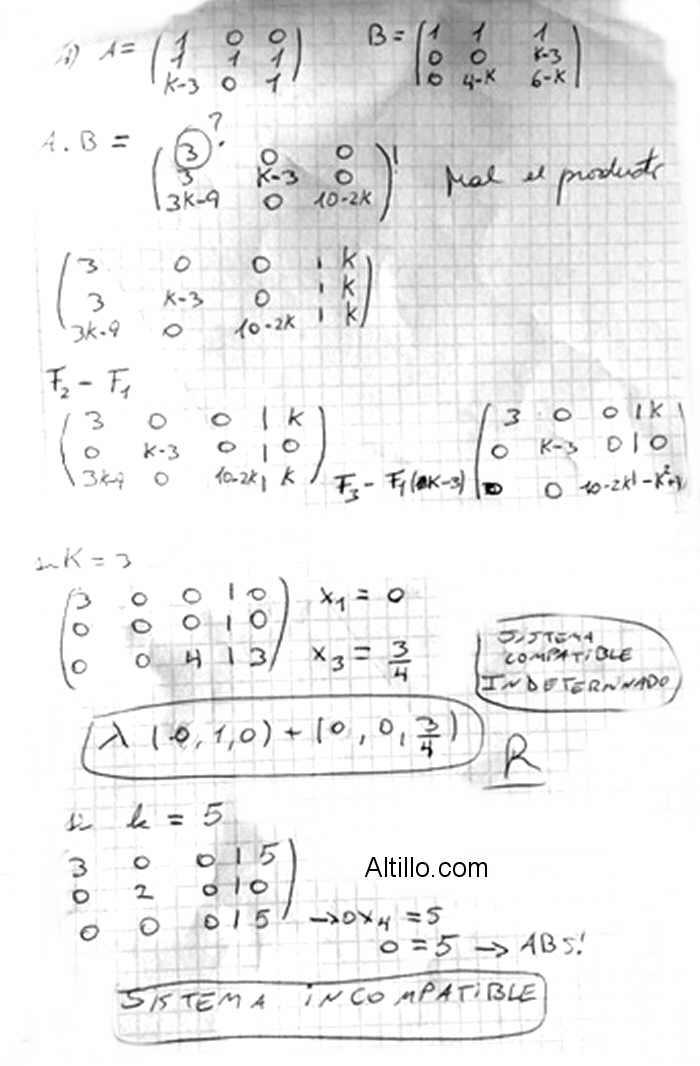 A = ( 1 0 0 B = ( 1 1 1
1 1 1 ) 0 0 K-3
K-3 0 1 0 4-K 6-K )
A . B = ( 3 ? 0 0 ) !
3 K-3 0 Mal el producto
3K-9 0 10-2K
( 3 0 0 | K )
3 K-3 0 | K
3K-9 0 10-2K | K
F2 - F1
( 3 0 0 | K )
0 K-3 0 | 0
3K-9 0 10-2K | K
F3 - F1 (K-3)
( 3 0 0 | K
0 K-3 0 | 0
0 10-2K | -K²+
si K = 3
( 3 0 0 | 0 ) x1 = 0
0 0 0 | 0
0 0 4 | 3 x3 = 3/4
SISTEMA
COMPATIBLE
INDETERMINADO
λ (0,1,0) + (0, 0, 3/4)
R
si k = 5
3 0 0 | 5 )
0 2 0 | 0
0 0 0 | 5 → 0x4 = 5
0 = 5 → ABS!
Altillo.com
SISTEMA INCOMPATIBLE